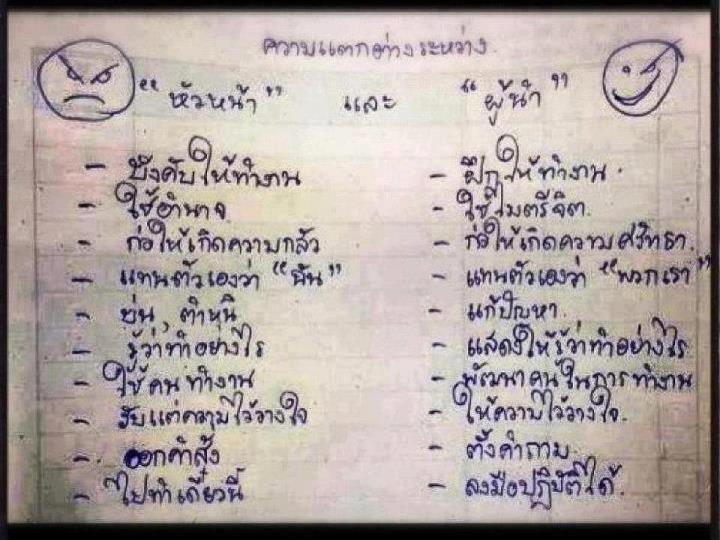 ความแตกต่างระหว่าง
“หัวหน้า” และ “ผู้นำ”
- บังคับให้ทำงาน
- ใช้อำนาจ
- ก่อให้เกิดความกลัว
- แทนตัวเองว่า “ฉัน”
- บ่น, ตำหนิ
- รู้ว่าทำอย่างไร
- ใช้คนทำงาน
- รับแต่ความไว้วางใจ
- ออกคำสั่ง
- ไปทำเดี๋ยวนี้
- ฝึกให้ทำงาน.
- ใช้ไมตรีจิต.
- ก่อให้เกิดความศรัทธา.
- แทนตัวเองว่า “พวกเรา”
- แก้ปัญหา.
- แสดงให้รู้ว่าทำอย่างไร
- พัฒนาคนในการทำงาน
- ให้ความไว้วางใจ.
- ตั้งคำถาม.
- ลงมือปฏิบัติได้.